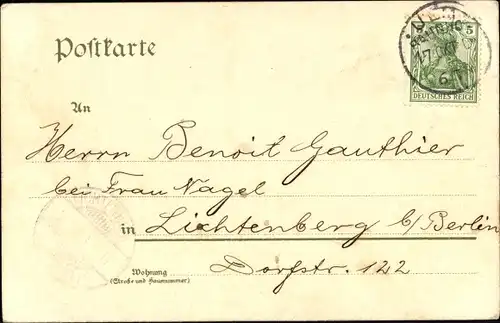 Postkarte
5
DEUTSCHES REICH
An
Herrn Benoit Gauthier
bei Frau Nagel
in Lichtenberg b/Berlin
Wohnung
(Straße und Hausnummer)
Dorfstr. 122